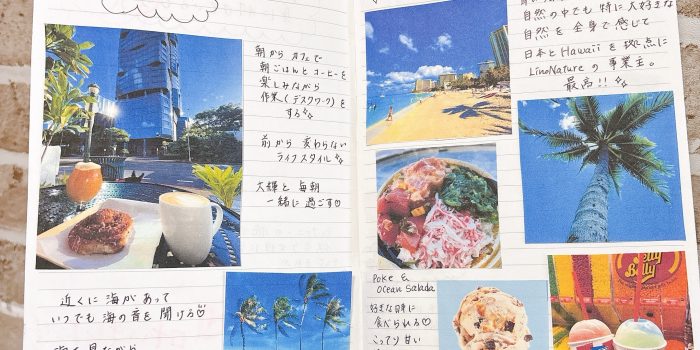 朝から カフェで
朝ごはんと コーヒーを
楽しみながら
作業(デスクワーク)を
する
前から 変わらない
ライフスタイル
大輝と 毎朝
一緒に 過ごす♡
近くに 海が あって
いつでも 海の音を 聞ける♡
自然の中でも 特に 大好きな
自然を 全身で 感じて
日本と Hawaii を 拠点に
LinoNatureの 事業主。
最高!!
Poke &
Ocean Salada
好きな時に
食べられる♡
こってり 甘い
Jelly
Belly